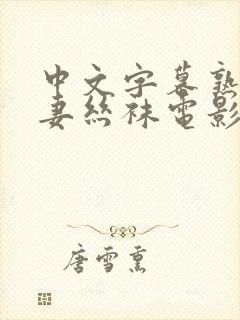 中文字幕熟
妻丝袜电影
唐雪熏